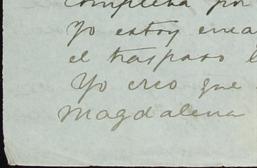 completa por
Yo estoy
el traspaso
Yo creo que
Magdalena